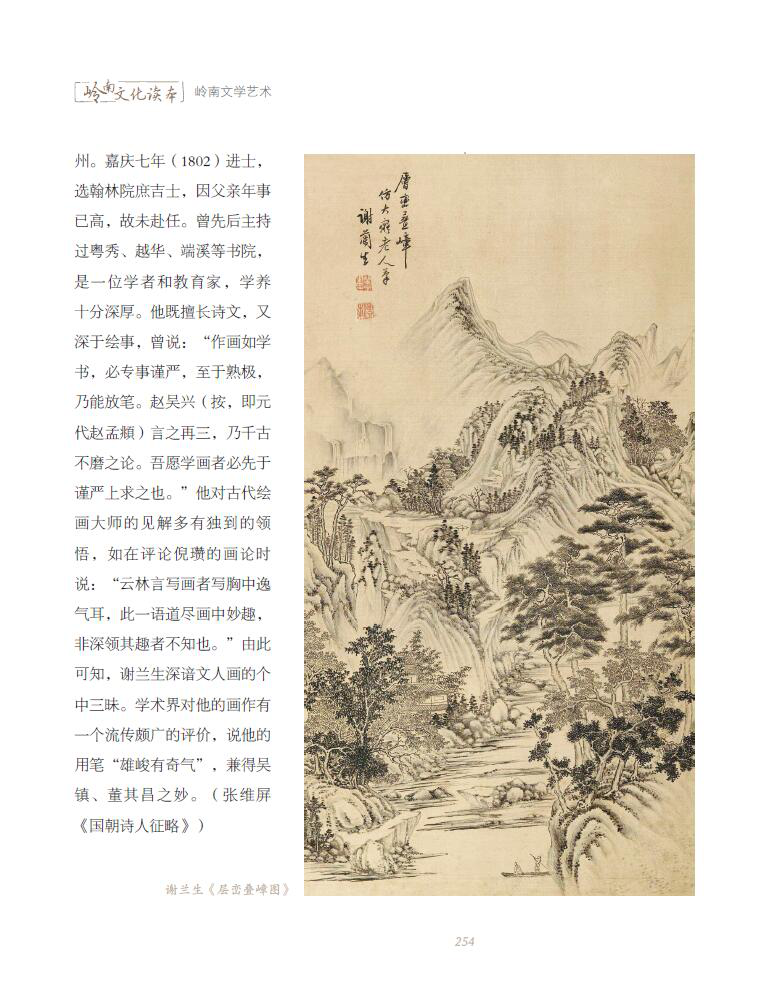 岭南文化读本 岭南文学艺术
州。嘉庆七年（1802）进士，
选翰林院庶吉士，因父亲年事
已高，故未赴任。曾先后主持
过粤秀、越华、端溪等书院，
是一位学者和教育家，学养
十分深厚。他既擅长诗文，又
深于绘事，曾说：“作画如学
书，必专事谨严，至于熟极，
乃能放笔。赵吴兴（按，即元
代赵孟頫）言之再三，乃千古
不磨之论。吾愿学画者必先于
谨严上求之也。”他对古代绘
画大师的见解多有独到的领
悟，如在评论倪瓒的画论时
说：“云林言写画者写胸中逸
气耳，此一语道尽画中妙趣，
非深领其趣者不知也。”由此
可知，谢兰生深谙文人画的个
中三昧。学术界对他的画作有
一个流传颇广的评价，说他的
用笔“雄峻有奇气”，兼得吴
镇、董其昌之妙。（张维屏
《国朝诗人征略》）
層巒叠嶂
仿大癡老人筆
谢蘭生
谢兰生《层峦叠嶂图》
254